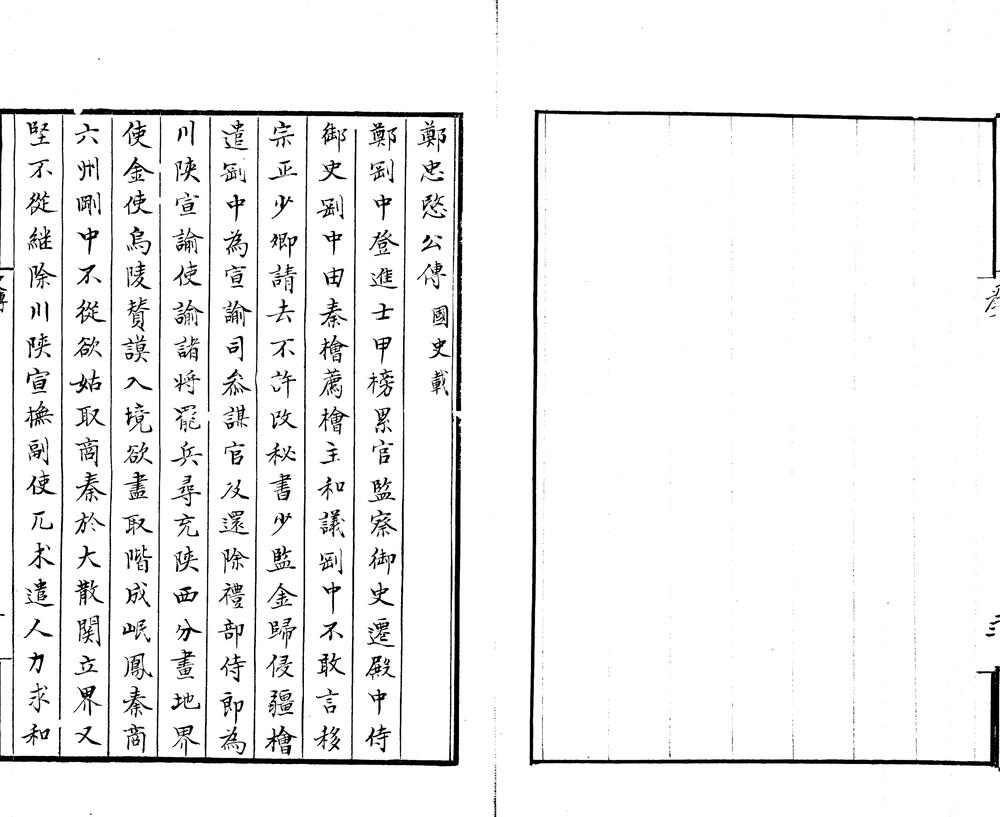 鄭忠愍公傳 國史載
鄭剛中登進士甲榜累官監察御史遷殿中侍
御史剛中由秦檜薦檜主和議剛中不敢言移
宗正少卿請去不許改秘書少監金歸侵疆檜
遣剛中為宣諭司叅謀官及還除禮部侍郎為
川陝宣諭使諭諸將罷兵尋充陝西分畫地界
使金使烏陵贊謨入境欲盡取階成岷鳳秦商
六州剛中不從欲姑取商秦於大散関立界又
堅不從継除川陝宣撫副使兀朮遣人力求和